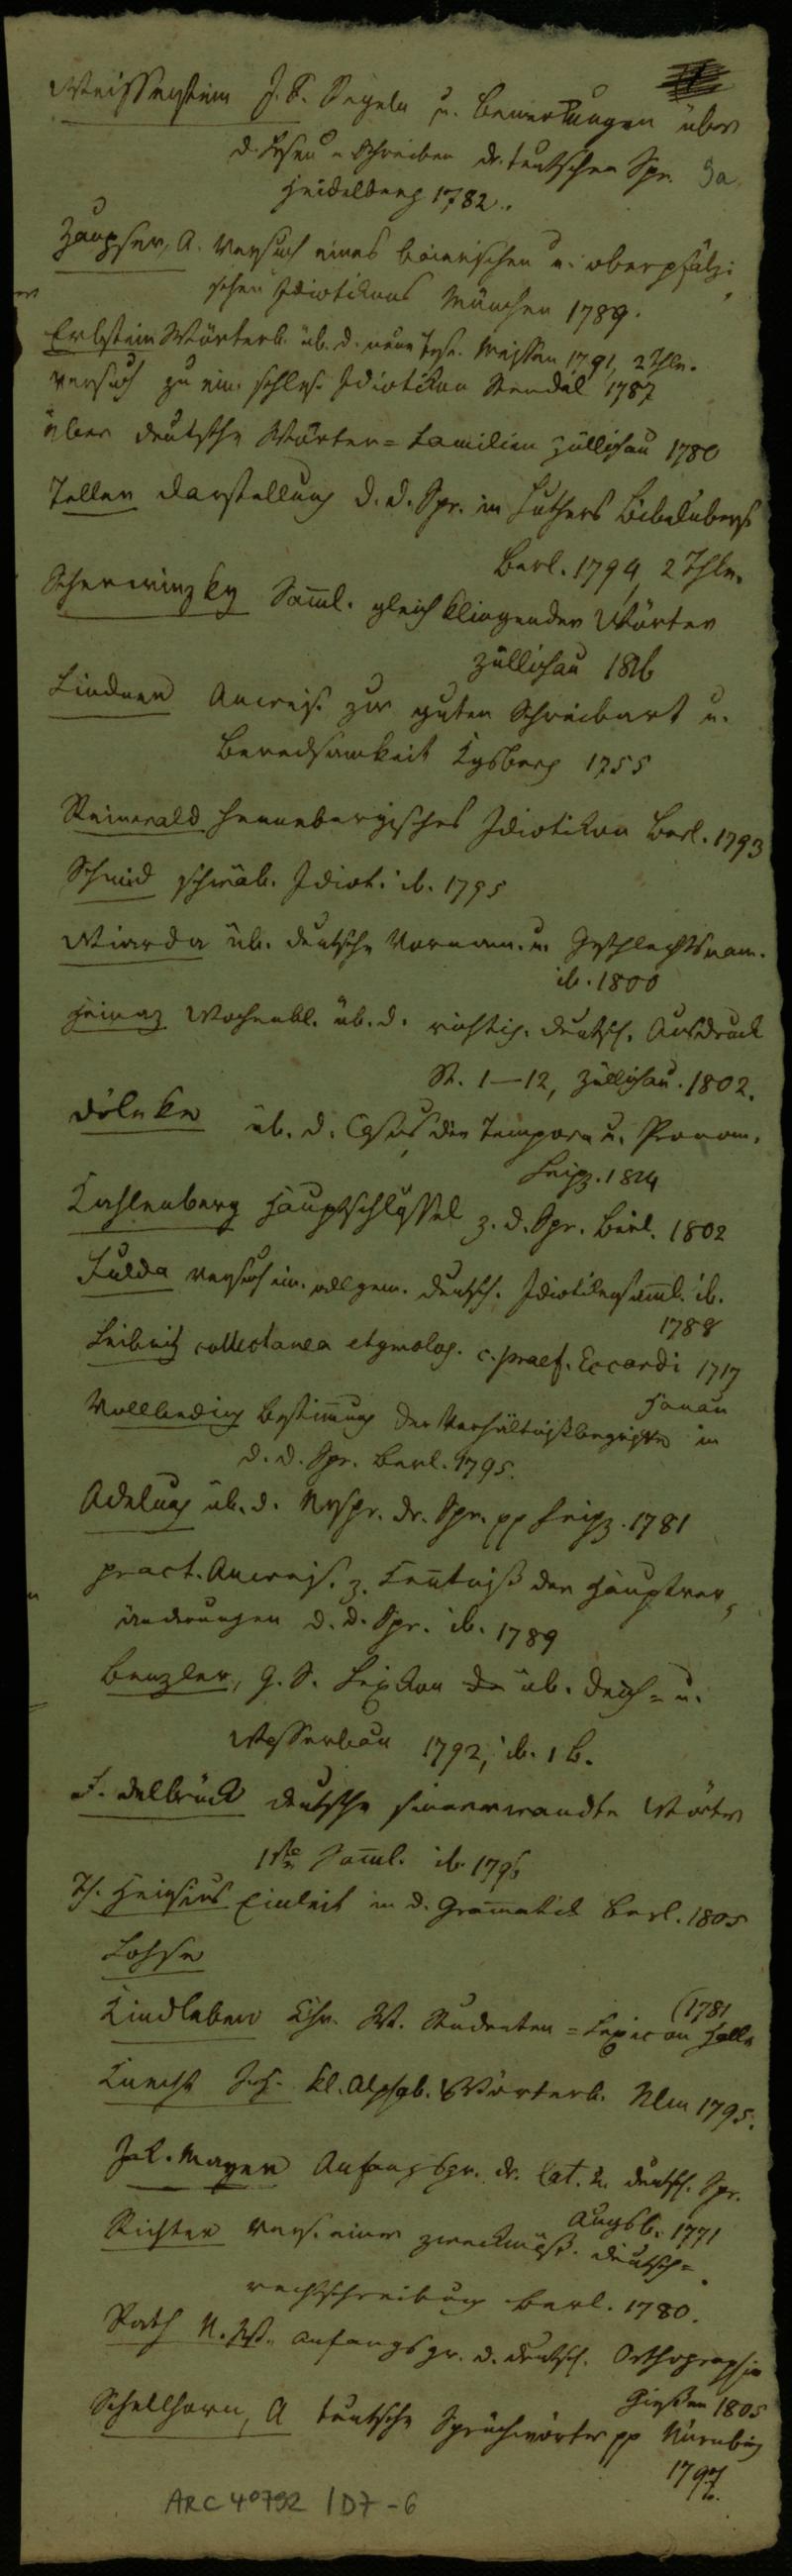 Weissenstein J. F. Regeln u. Bemerkungen über
d. Lesen u Schreiben dr. teutschen Spr. 9a
Heidelberg 1782.
Zaupser, A. Versuch eines baierischen u. oberpfälzi
schen Idiotikons München 1789.
Erbstein Wörterb. üb. d. neue Test. Meissen 1791, 2 Thle.
Versuch zu ein. schles. Idiotikon Stendal 1787
über deutsche Wörter=Familien Züllichau 1780
Teller Darstellung d. d. Spr. in Luthers Bibelübers
Berl. 1794, 2 Thle.
Scherwinzky Saml. gleich klingender Wörter
Züllichau
Lindner Anweis. zur guten Schreibart u.
Beredsamkeit Kgsberg 1755
Reinwald Hennebergisches Idiotikon Berl. 1793
Schmid schwäb. Idiot. ib. 1795
Wiarda üb. deutsche Vornam. u. Geschlechtsnam.
ib. 1800
Heinaz Wochenbl. üb. d. richtig. deutsch. Ausdruck
St. 1—12, Züllichau. 1802.
Döleke üb. d. Casus, die Tempora u. Pronom.
Leipz. 1814
Kahlenberg Hauptschlüssel z. d. Spr. Berl. 1802
Fulda Versuch ein. allgem. deutsch. Idiotikensaml. ib.
1788
Leibnitz collectanea etymolog. c. praef. Eccardi 1717
Hanau
Vollbeding Bestimung der Verhältnißbegriffe in
d. d. Spr. Berl. 1795.
Adelung üb. d. Urspr. dr. Spr. pp Leipz. 1781
pract. Anweis. z. Kentniß der Hauptver
änderungen d. d. Spr. ib. 1789
Benzler, J. S. Lexikon üb. Deich= u.
Wasserbau 1792, ib. 1 B.
F. Delbrück deutsche sinnverwandte Wörter
1ste Saml. ib. 1796
Th. Heinsius Einleit in d. Gramatik Berl. 1805
Lohse
Kindleben Chr. W. Studenten=Lexicon Halle
(1781
Knecht J. H. kl. Alphab. Wörterb. Ulm 1795.
Jak. Mayer Anfangsgr. dr. lat. u. deutsch. Spr.
Augsb. 1771
Richter Vers. einer zweckmäss. deutsch=
rechtschreibung Berl. 1780.
Rath Anfangsgr. d. deutsch. Orthographie
Gießen 1805
Schellhorn, A teutsche Sprüchwörter pp Nürnberg
1797.
ARC 4°792 / D7-6